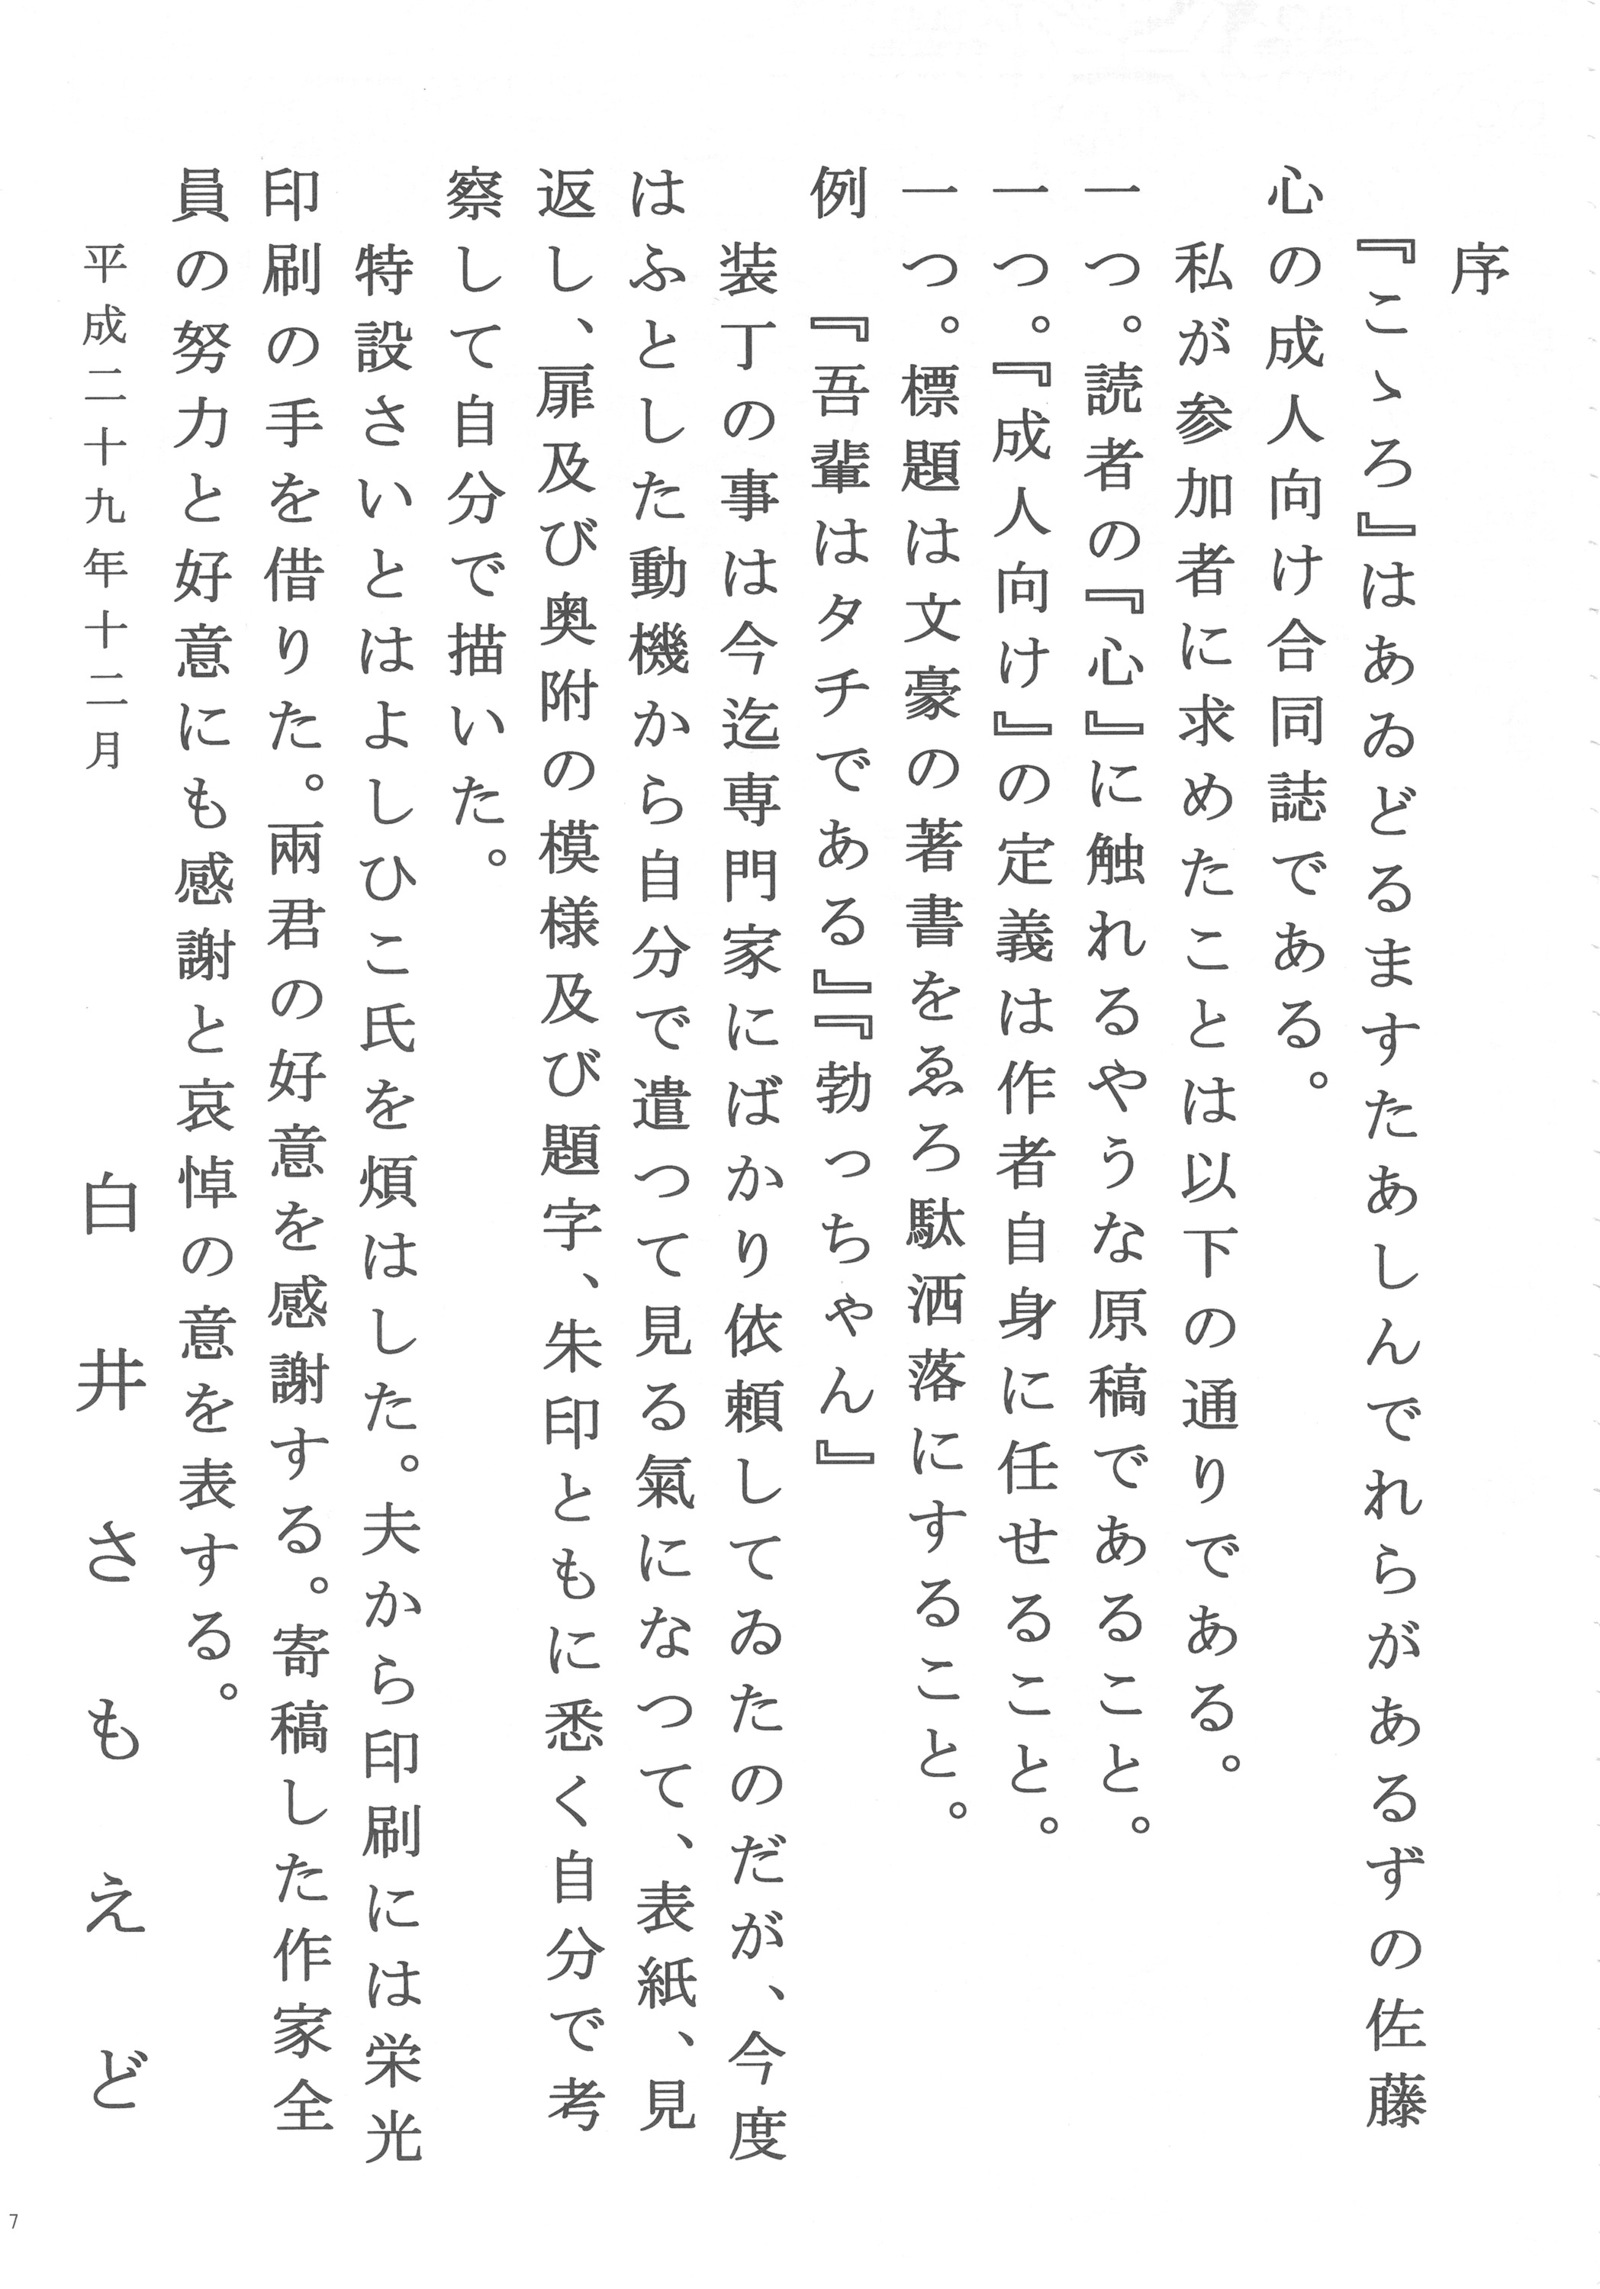 序
『こゝろ』はあゐどるますたあしんでれらがあるずの佐藤
心の成人向け合同誌である。
私が参加者に求めたことは以下の通りである。
一つ。読者の『心』に触れるやうな原稿であること。
一つ。『成人向け』の定義は作者自身に任せること。
一つ。標題は文豪の著書をゑろ駄洒落にすること。
例　『吾輩はタチである』『勃っちゃん』
装丁の事は今迄専門家にばかり依頼してゐたのだが、今度
はふとした動機から自分で遣つて見る氣になつて、表紙、見
返し、扉及び奥附の模様及び題字、朱印ともに悉く自分で考
察して自分で描いた。
特設さいとはよしひこ氏を煩はした。夫から印刷には栄光
印刷の手を借りた。兩君の好意を感謝する。寄稿した作家全
員の努力と好意にも感謝と哀悼の意を表する。
平成二十九年十二月　白井さもえど
7